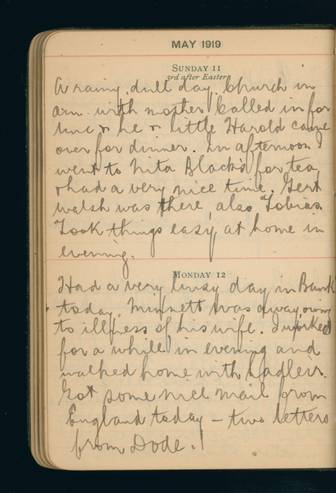 MAY 1919
SUNDAY 11
3rd after Easter
A rainy, dull day. Church in
a.m. with mother. Called in for
& he & little Harold came
over for dinner. In afternoon
went to Nita Black's for tea
& had a very nice time. Gert
Walsh was there, also Tobias.
Took things easy at home in
evening.
MONDAY 12
Had a very busy day in Bank
today. Minnett was away owing
to illness of his wife. I worked
for a while in evening and
walked home with Sadleir.
Got some nice mail from
England today – two letters
from Dode.